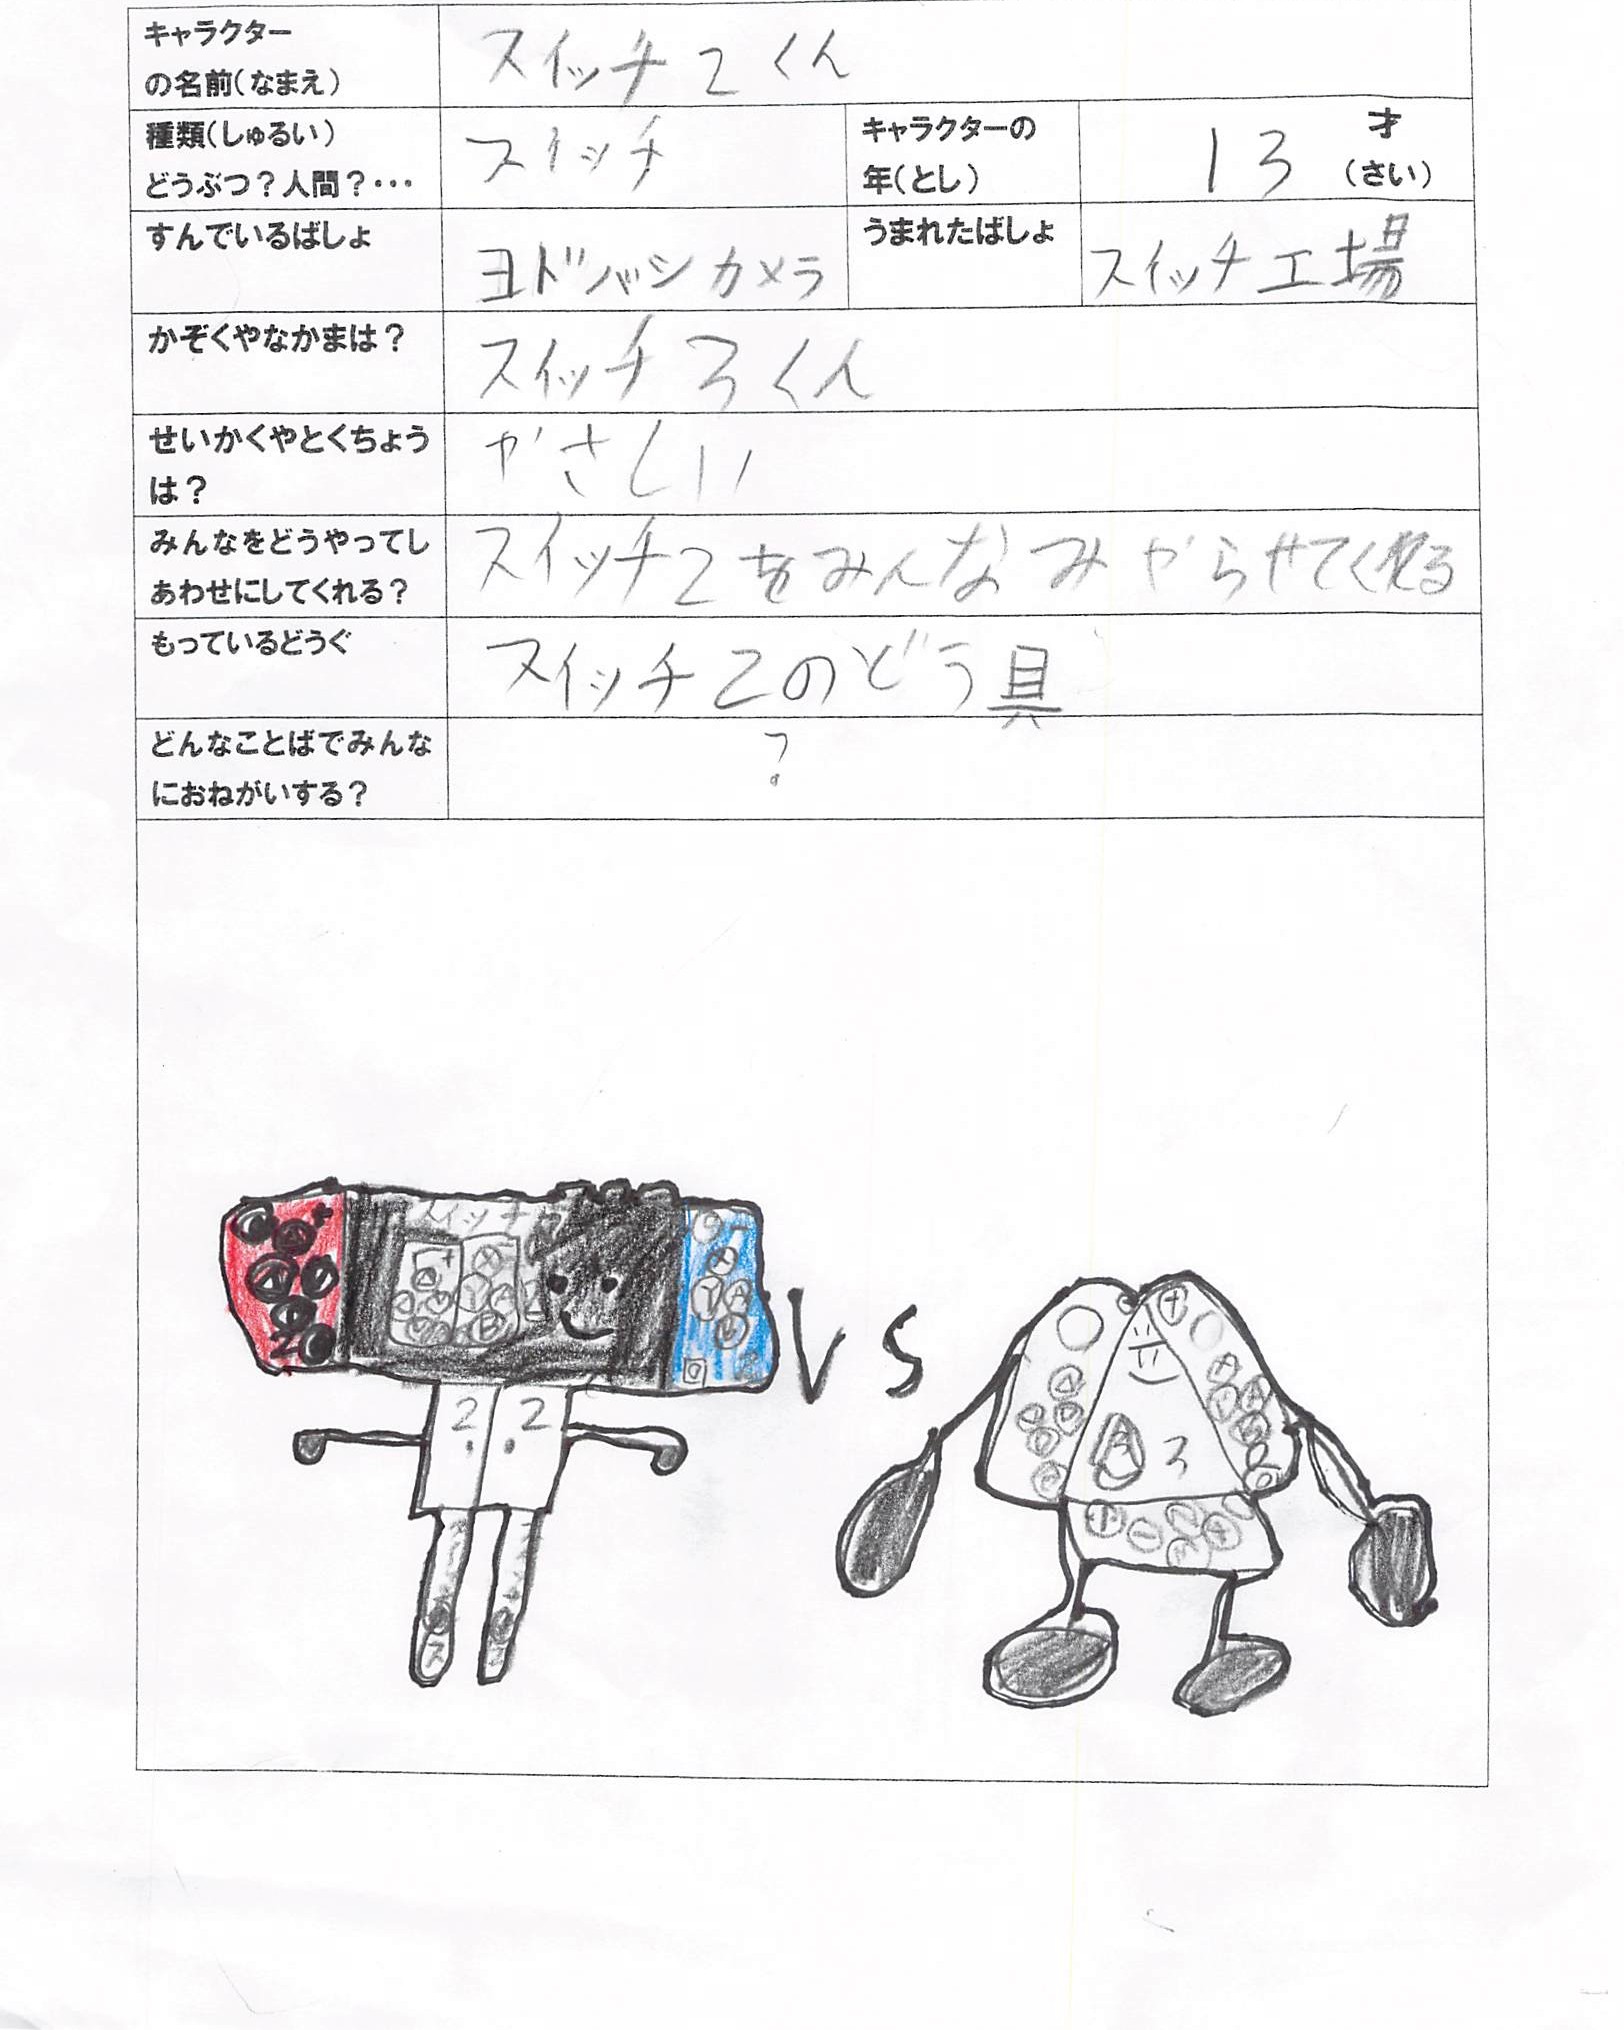 キャラクター
の名前(なまえ)
スイッチ2くん
種類(しゅるい)
どうぶつ?人間?・・・
スイッチ
キャラクターの
年(とし)
13
才
(さい)
すんでいるばしょ
ヨドバシカメラ
うまれたばしょ
スイッチ工場
かぞくやなかまは?
スイッチ3くん
せいかくやとくちょう
は?
やさしい
みんなをどうやってし
あわせにしてくれる?
スイッチ2をみんなみやらせてくれる
もっているどうぐ
スイッチ2のどう具
どんなことばでみんな
におねがいする?
?
スイッチ2
VS
2 2
3